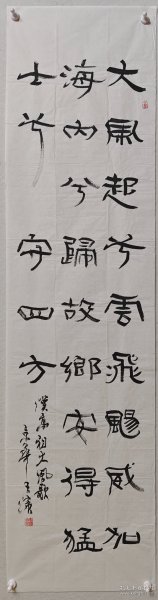 大風起兮雲飛颺威加
海內兮歸故鄉安得猛
士兮守四方
漢高祖大風歌
京華